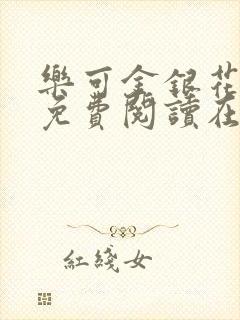 樂可金銀花
免費閱讀在
紅綫女